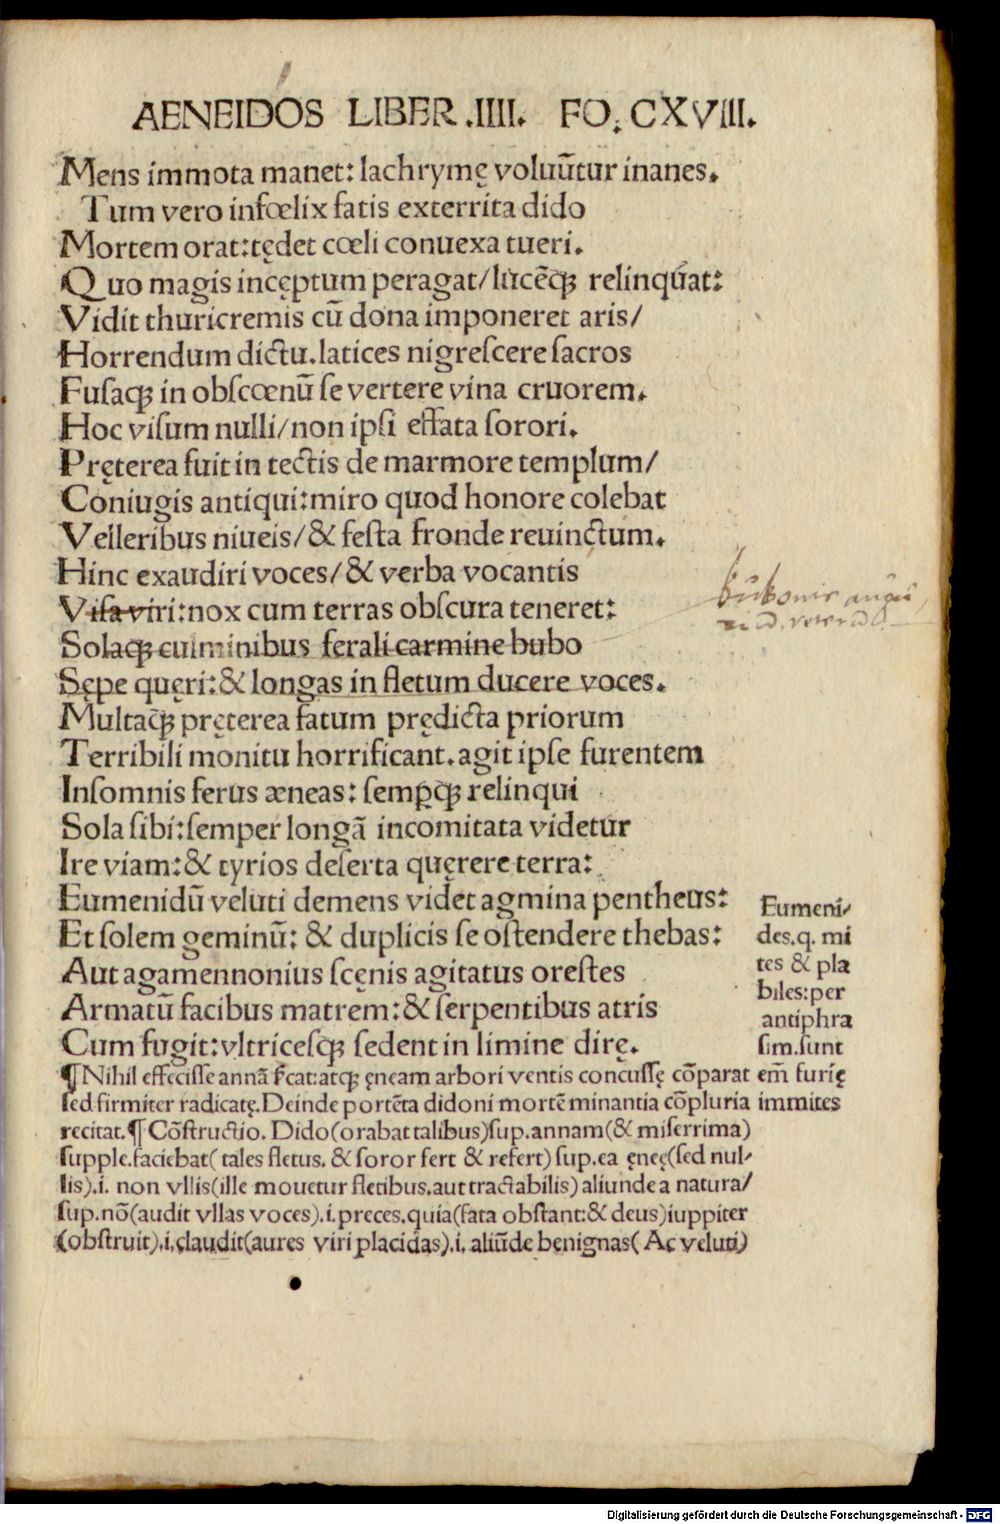 AENEIDOS LIBER .IIII. FO. CXVIII.
Mens immota manet: lachrymę voluũtur inanes.
Tum vero infœlix fatis exterrita dido
Mortem orat: tędet cœli conuexa tueri.
Quo magis incęptum peragat/lucẽqȝ relinquat:
Vidit thuricremis cũ dona imponeret aris/
Horrendum dictu. latices nigreſcere ſacros
Fuſaqȝ in obſcœnũ ſe vertere vina cruorem.
Hoc viſum nulli/non ipſi effata ſorori.
Pręterea fuit in tectis de marmore templum/
Coniugis antiqui: miro quod honore colebat
Velleribus niueis/& feſta fronde reuinctum.
Hinc exaudiri voces/& verba vocantis
Viſa viri: nox cum terras obſcura teneret:
Solaqȝ culminibus ferali carmine bubo
Sępe queri: & longas in fletum ducere voces.
Multaqȝ pręterea fatum prędicta priorum
Terribili monitu horrificant. agit ipſe furentem
Inſomnis ferus æneas: ſemꝑqȝ relinqui
Sola ſibi: ſemper longã incomitata videtur
Ire viam: & tyrios deſerta quęrere terra:
Eumenidũ veluti demens videt agmina pentheus:
Et ſolem geminũ: & duplicis ſe oſtendere thebas:
Aut agamennonius ſcęnis agitatus oreſtes
Armatũ facibus matrem: & ſerpentibus atris
Cum fugit: vltriceſqȝ ſedent in limine dirę.
¶ Nihil effeciſſe annã fcat: atqȝ ęneam arbori ventis concuſſę cõparat
ſed firmiter radicatę. Deinde portẽta didoni mortẽ minantia cõpluria
recitat. ¶ Cõſtructio. Dido(orabat talibus)ſup. annam(& miſerrima)
ſupple. faciebat(tales fletus. & ſoror fert & refert)ſup. ea ęneę(ſed nul-
lis).i. non vllis(ille mouetur fletibus. aut tractabilis)aliunde a natura/
ſup. nõ(audit vllas voces).i. preces. quia(fata obſtant: & deus)iuppiter
(obſtruit).i. claudit(aures viri placidas).i. aliũde benignas(Ac veluti)
bubonis
Eumeni-
des. q. mi
tes & pla
biles: per
antiphra
ſim. ſunt
em̃ furię
immites
Digitalisierung gefördert durch die Deutsche Forschungsgemeinschaft - DFG